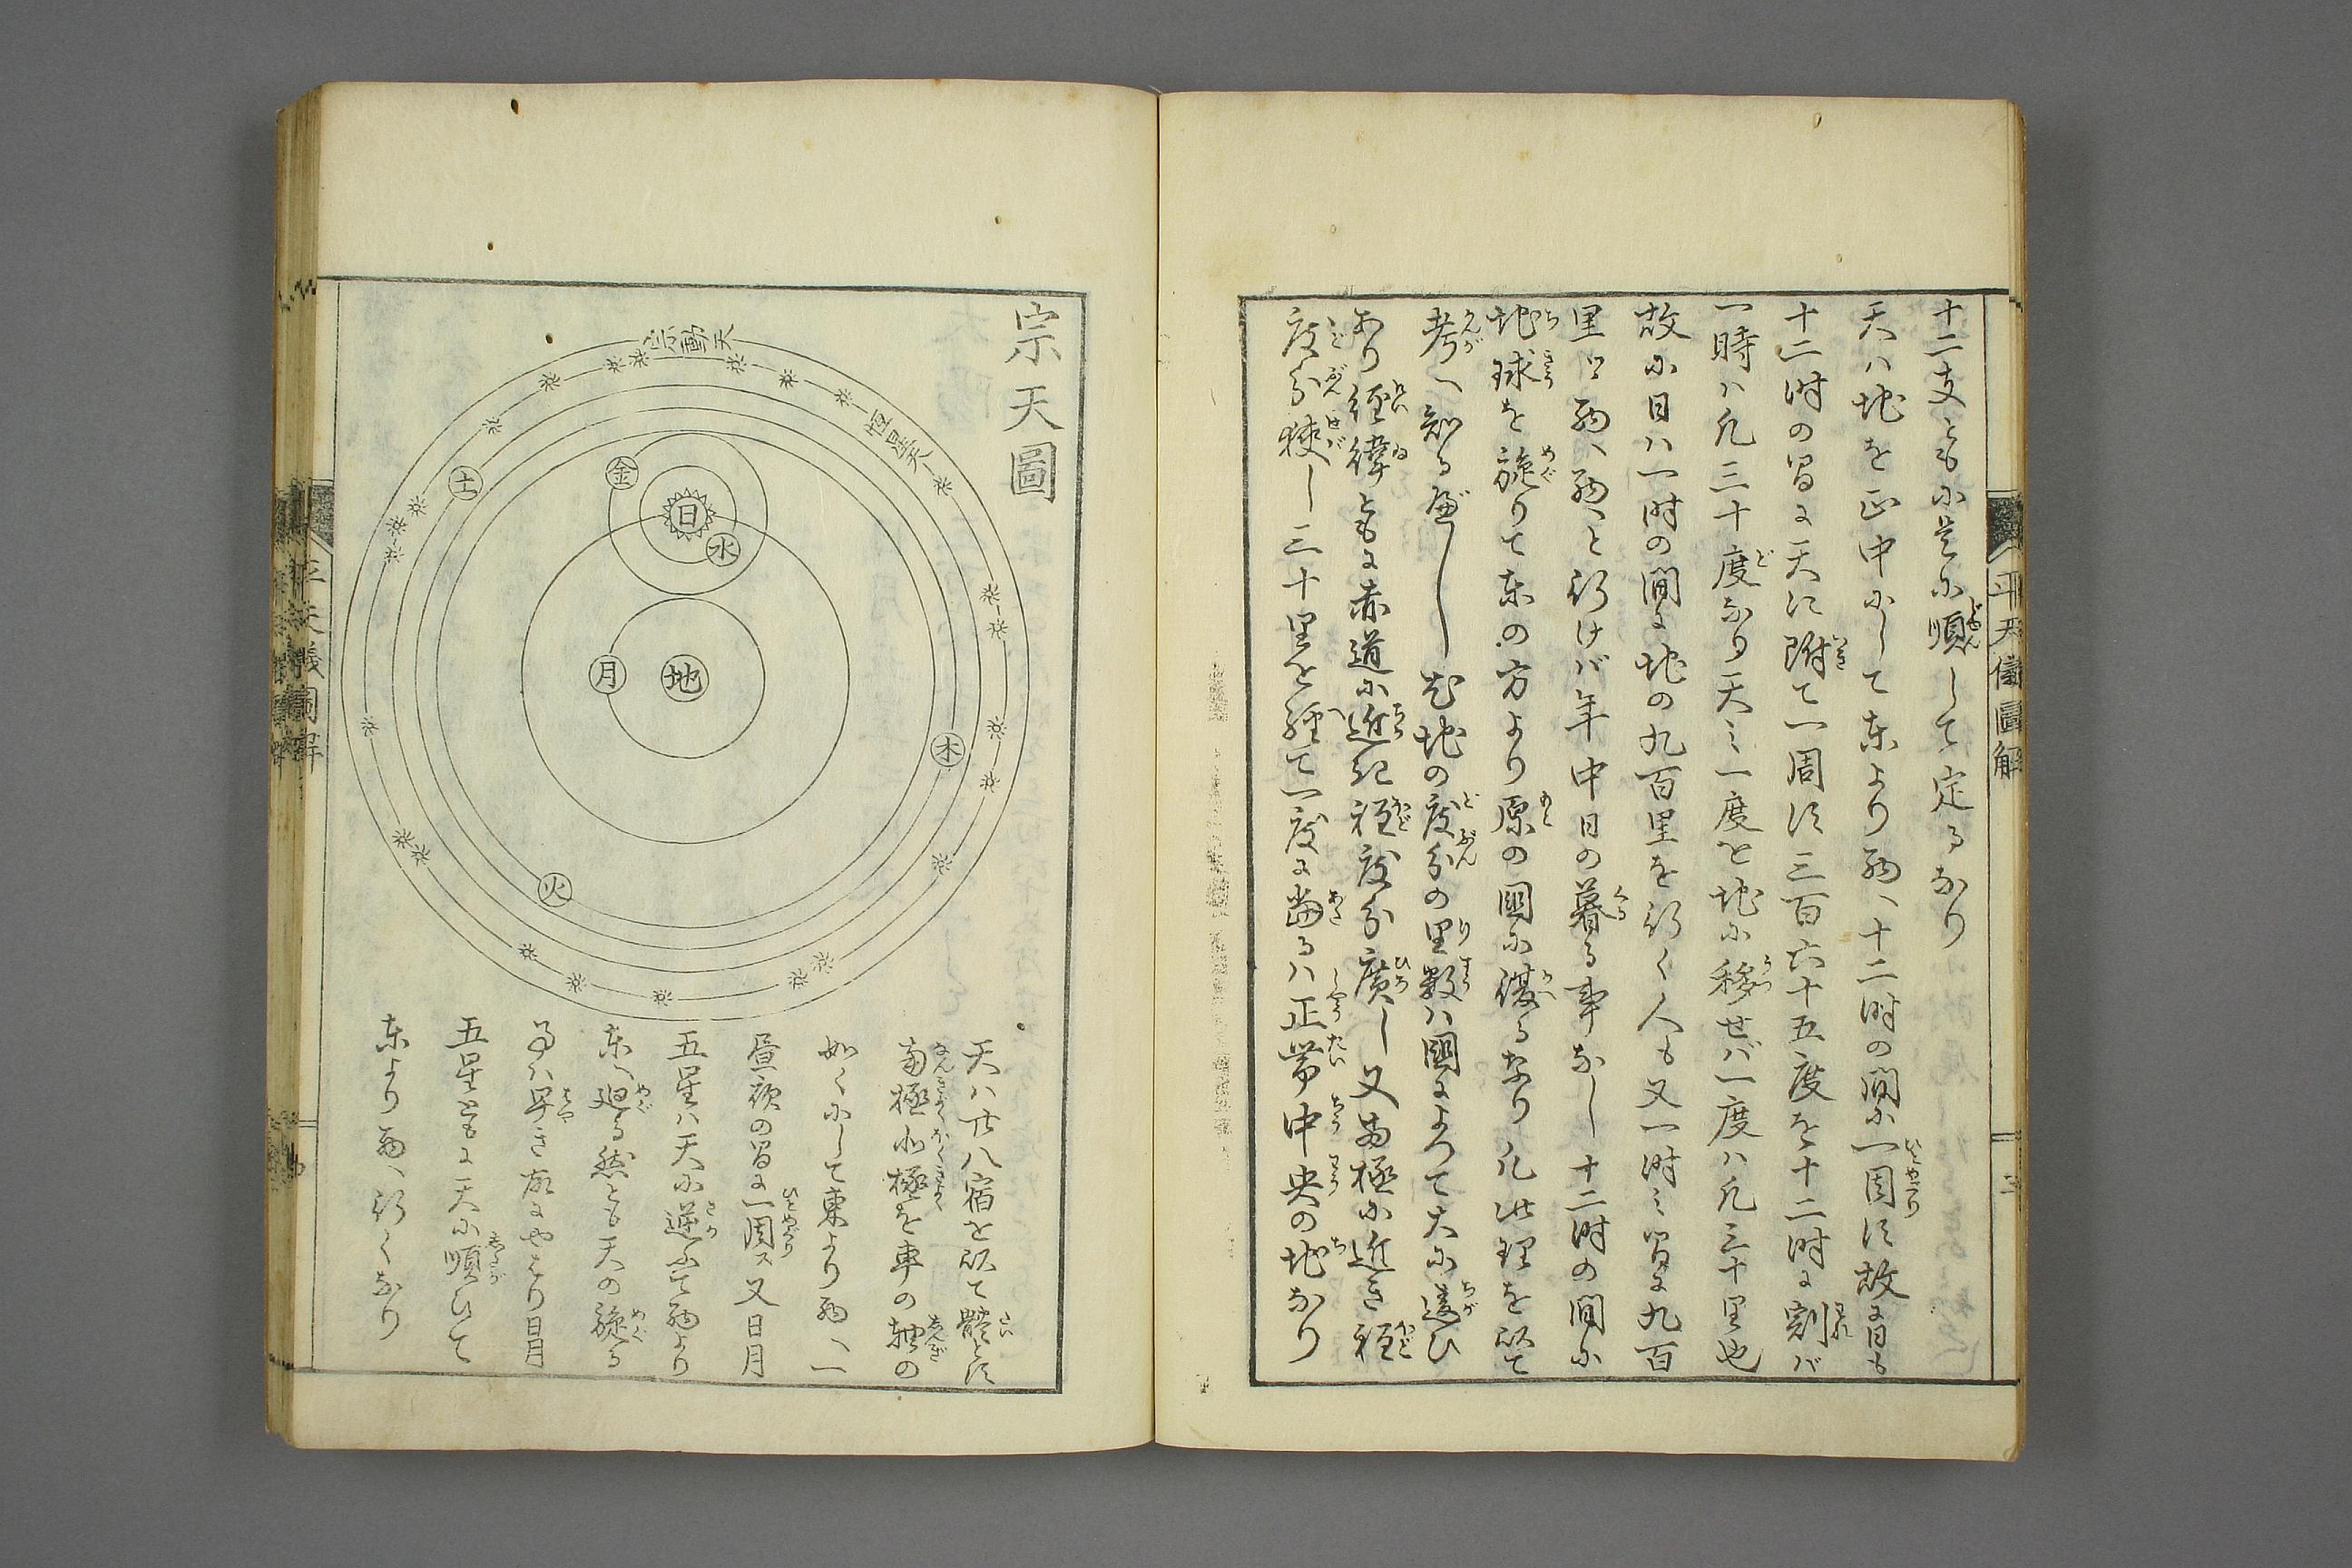 十二支ともに是に順して定るなり
天ハ地を正中にして東より西へ十二時の間に一周す故に日も
十二時の間に天に附て一周す三百六十五度を十二時に割バ
一時ハ凡三十度なり天之一度を地に移せバ一度ハ凡三十里也
故に日ハ一時の間に地の九百里を行く人も又一時之間に九百
里ツヽ西へ西へと行けバ年中日の暮る事なし十二時の間に
地球を旋りて東の方より原の國に復るなり凡此理を以て
考へ知るべし
地の度分の里數ハ國によつて大に違ひ
あり經緯ともに赤道に近き程度分廣し又南極に近き程
度分狹し三十里を經て一度に當るハ正帶中央の地なり
平天儀圖解
宗天圖
宗動天
恒星天
土
金
日
水
月
地
木
火
天ハ廿八宿を以て體とす
南極北極を車の軸の
如くにして東より西へ一
昼夜の間に一周ス又日月
五星ハ天に逆ふて西より
東へ廻る然とも天の旋る
事ハ早き故にやはり日月
五星ともに天に順ひて
東より西へ行くなり